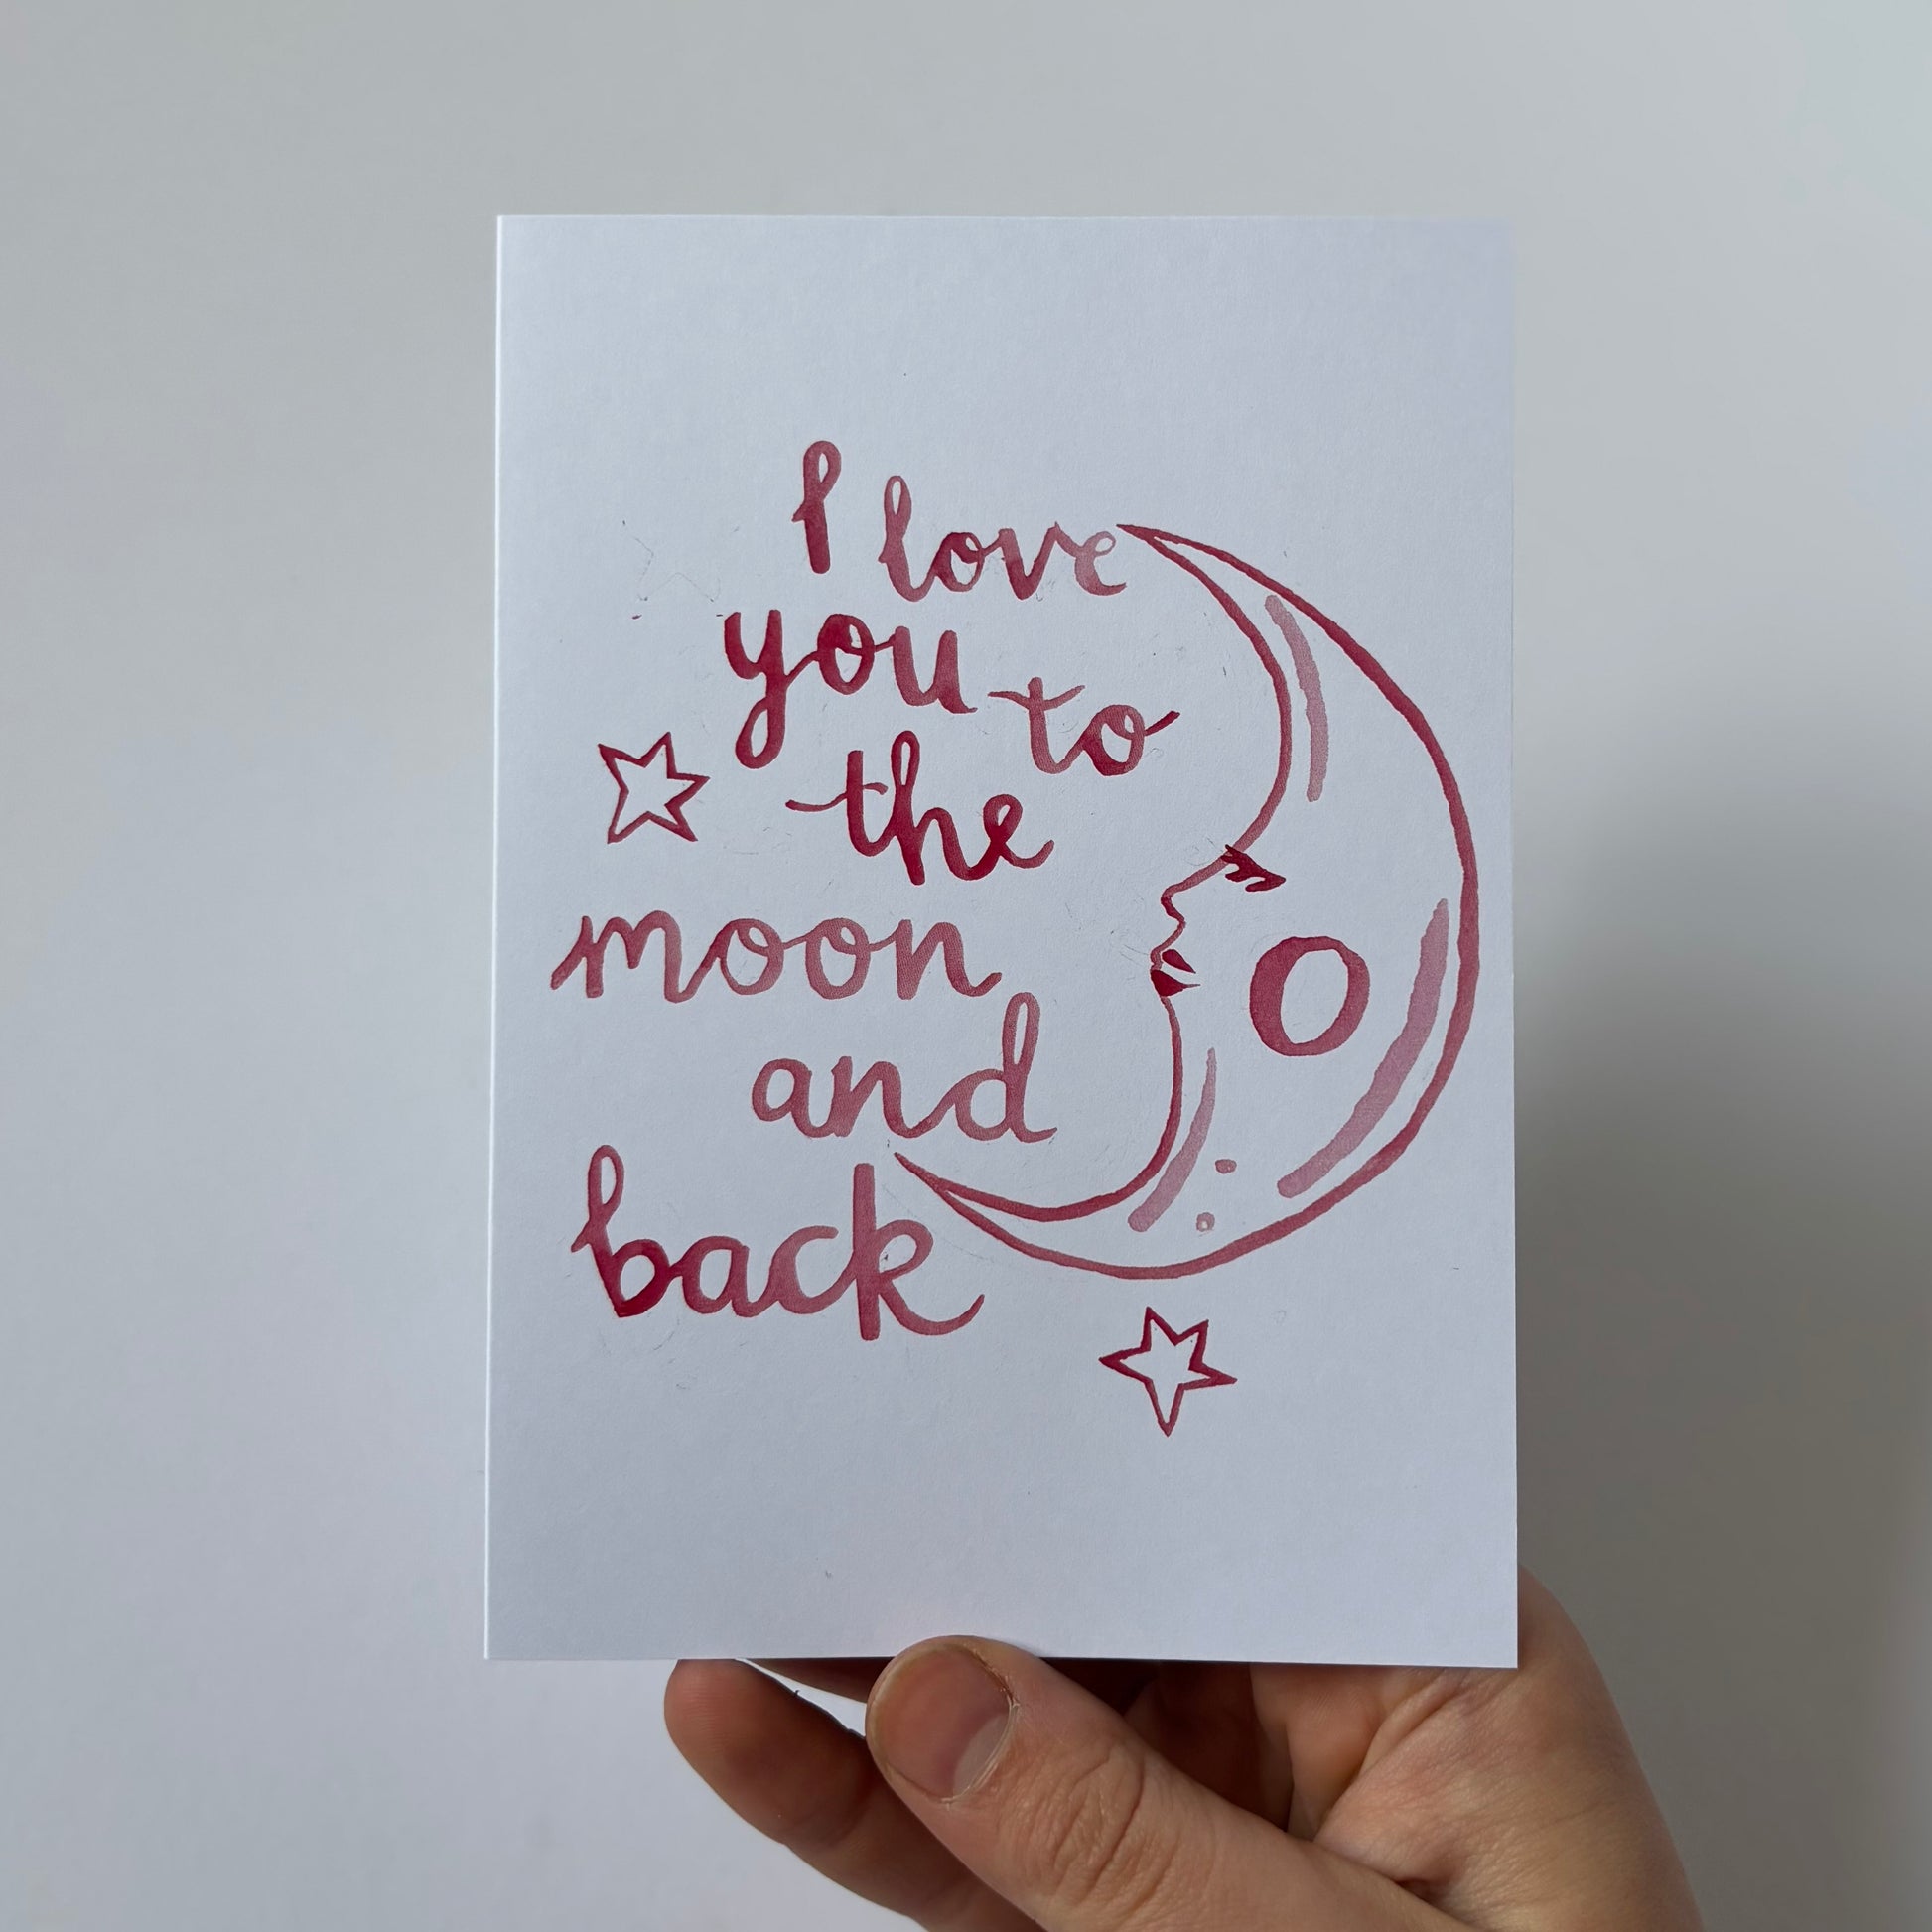 I love
you to
the
moon
and
back